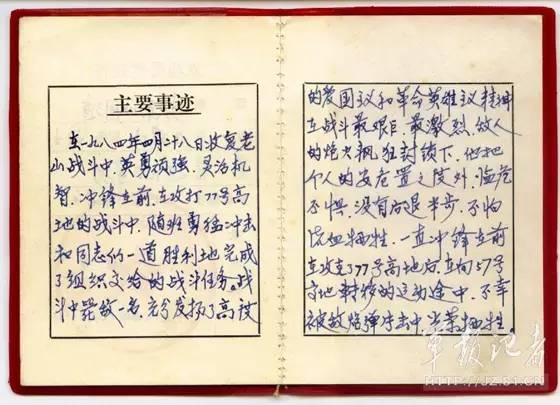 主要事迹
在一九八四年四月二十八日收复老
山战斗中，英勇顽强，灵活机
智，冲锋在前，在攻打77号高
地的战斗中，随班勇猛冲击
和同志们一道胜利地完成
了组织交给的战斗任务。战
斗中毙敌一名，充分发扬了高度
的爱国主义和革命英雄主义精神
在战斗最艰巨、最激烈，敌人
的炮火疯狂封锁下，他把
个人的安危置之度外，临危
不惧，没有后退半步，不怕
流血牺牲，一直冲锋在前
在攻克了77号高地后，在向57号
高地转移的运动途中，不幸
被敌炮弹击中光荣牺牲。
军报记者
HTTP://JZ.81.CN